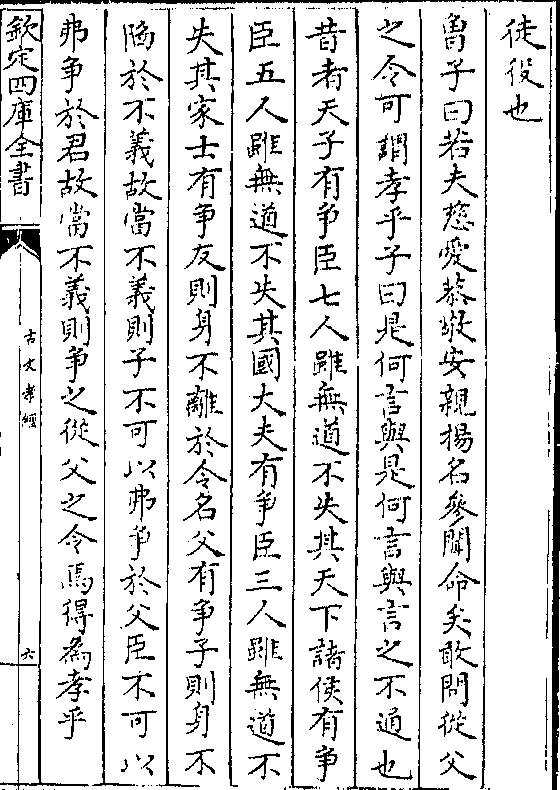 徒役也
曾子曰若夫慈愛恭敬安親揚名參聞命矣敢問從父
之令可謂孝乎子曰是何言與是何言與言之不通也
昔者天子有爭臣七人雖無道不失其天下諸侯有爭
臣五人雖無道不失其國大夫有爭臣三人雖無道不
失其家士有爭友則身不離於令名父有爭子則身不
陷於不義故當不義則子不可以弗爭於父臣不可以
弗爭於君故當不義則爭之從父之令焉得為孝乎
欽定四庫全書
古文孝經
六